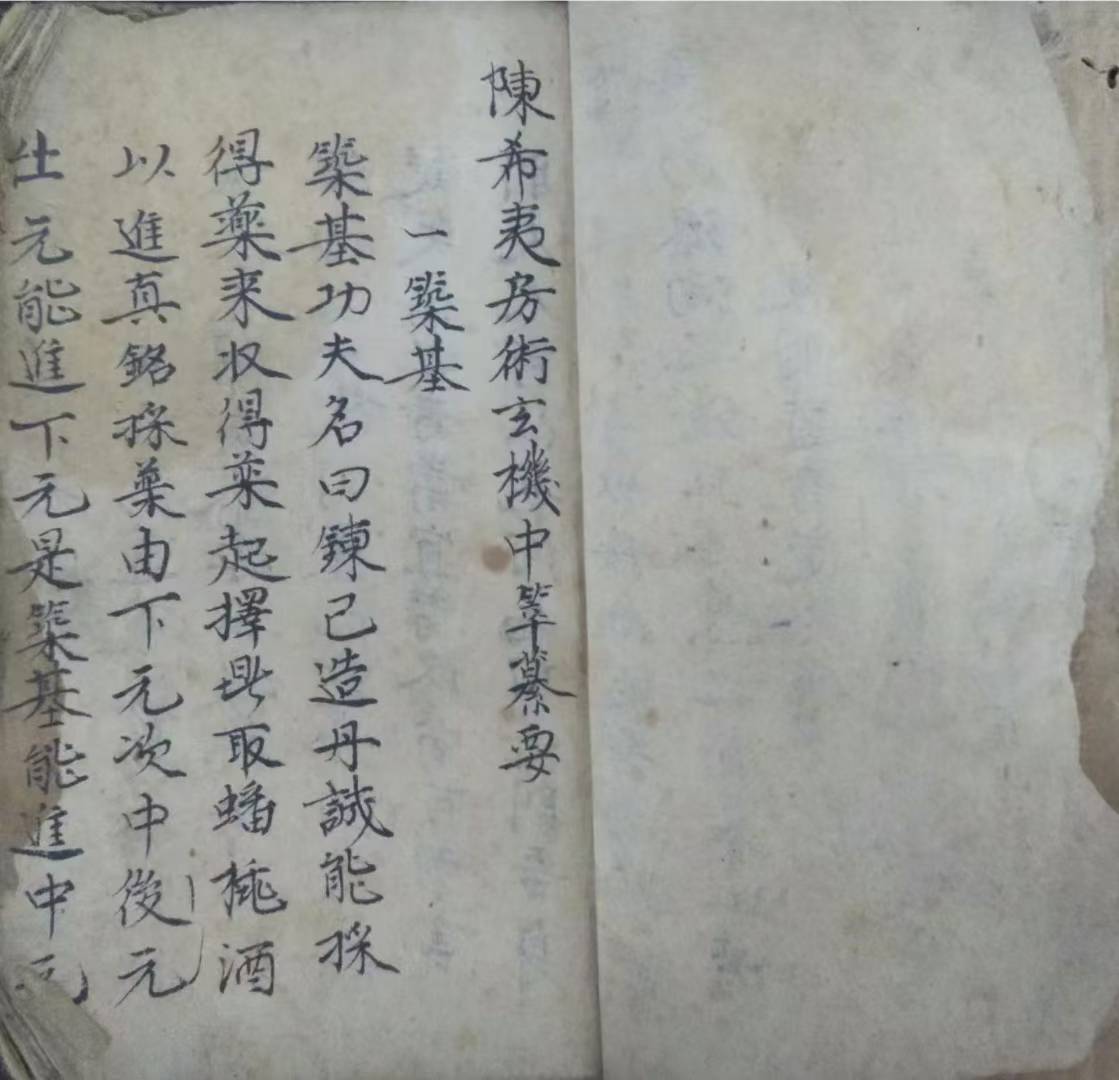 陳希夷房術玄機中萃纂要
一築基
築基功夫名曰鍊己造丹誠能採
得藥来収得薬起擇鼎取蟠桃酒
以進真鉛採薬由下元次中後元
仕元能進下元是築基能進中元